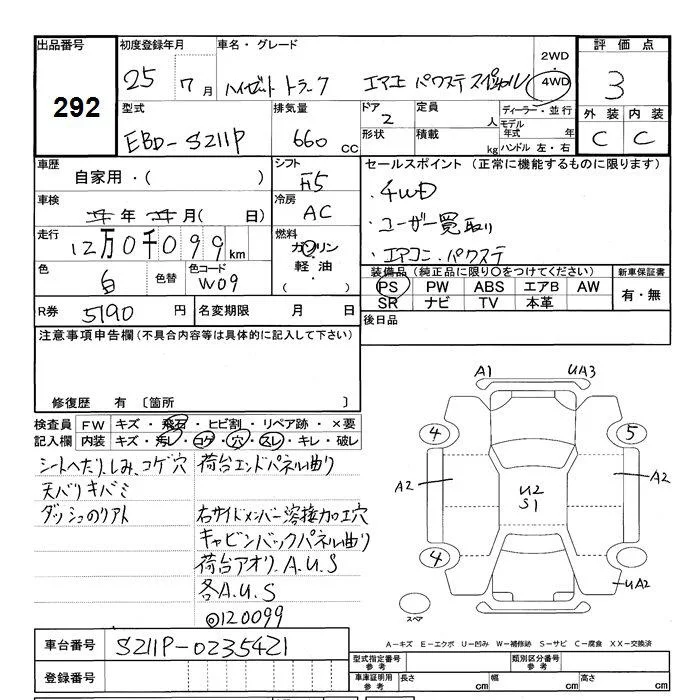 出品番号 初度登録年月 車名・グレード 2WD 評価点
292 25 7月 ハイゼット トラック エアコン パワステ スペシャル 4WD 3
型式 排気量 ドア 定員 ディーラー・並行 外装 内装
EBD-S211P 660cc 2 人 モデル年式 年 C C
形状 積載 kg ハンドル 左・右
車歴 シフト セールスポイント (正常に機能するものに限ります)
自家用・( ) F5 ・4WD
車検 冷房 ・ユーザー買取り
年 月( 日) AC ・エアコン・パワステ
走行 燃料
12万0千099km ガソリン
軽油・
( )
色 色替 色コード 装備品(純正品に限り○をつけてください) 新車保証書
白 W09 PS PW ABS エアB AW 有・無
SR ナビ TV 本革
R券 5190円 名変期限 月 日 後日品
注意事項申告欄(不具合内容等は具体的に記入して下さい)
修復歴 有 〔箇所 〕
検査員 FW キズ・飛石・ヒビ割・リペア跡・×要
記入欄 内装 キズ・汚レ・コゲ・穴・スレ・キレ・破レ
シートへたり、しみ、コゲ穴 荷台エンドパネル曲り
天バリキバミ
ダッシュのリアト 右サイドメンバー溶接加工穴
キャビンバックパネル曲り
荷台アオリ.A.U.S
各A.U.S
◎120099
A1 UA3
4 5
A2 U2 A2
S1
4 UA2
スペア
A-キズ E-エクボ U-凹み W-補修跡 S-サビ C-腐食 XX-交換済
車台番号 S211P-0235421
登録番号
型式指定番号 参考 類別区分番号 参考
車庫証明用 参考 長さ cm 幅 cm 高さ cm